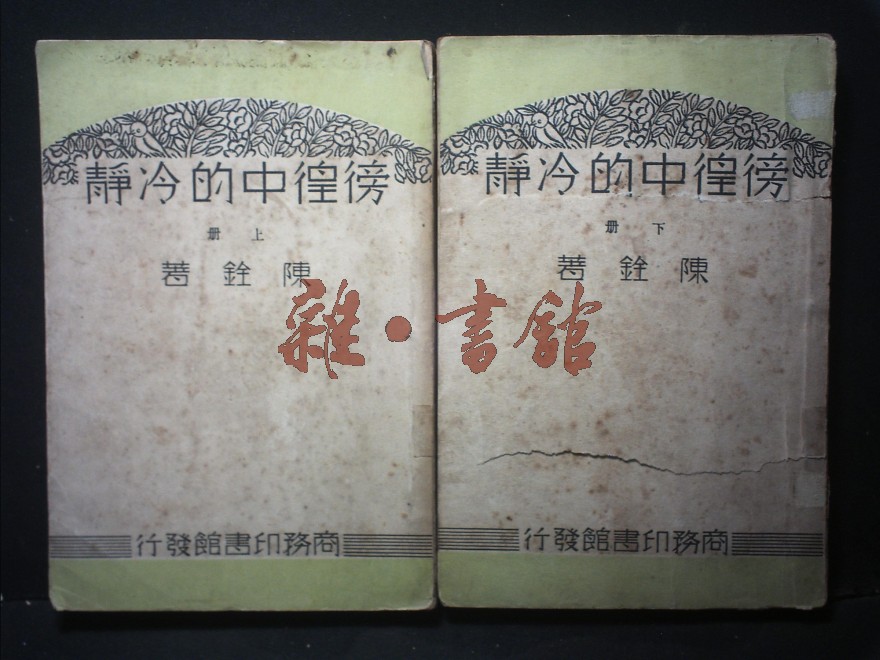 徬徨中的冷靜
上册
陳銓著
商務印書館發行
徬徨中的冷靜
下册
陳銓著
商務印書館發行
雜·書館